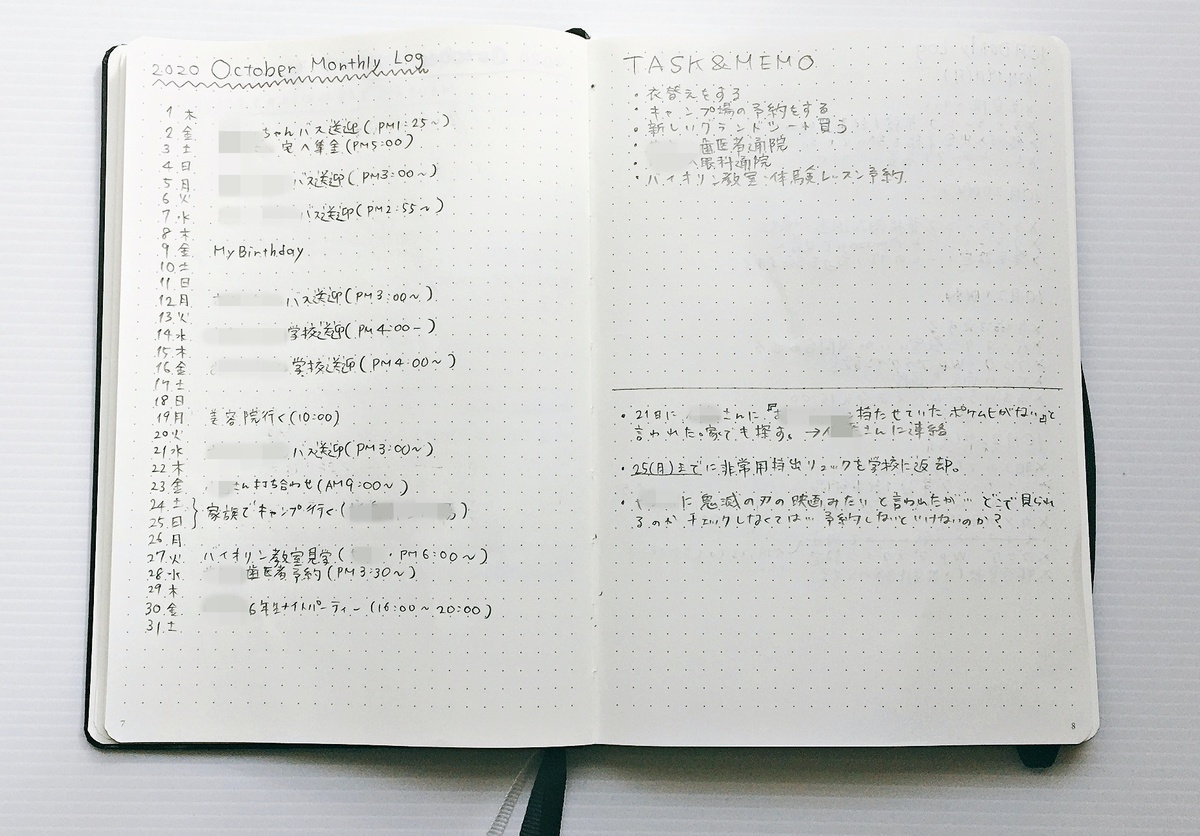 2020 October Monthly Log
1 木
2 金 ちゃんバス送迎(PM1:25~)
3 土 宅へ集金(PM5:00)
4 日
5 月 バス送迎(PM3:00~)
6 火
7 水 バス送迎(PM2:55~)
8 木
9 金 My Birthday
10 土
11 日
12 月 バス送迎(PM3:00~)
13 火
14 水 学校送迎(PM4:00-)
15 木
16 金 学校送迎(PM4:00~)
17 土
18 日
19 月 美容院行く(10:00)
20 火
21 水 バス送迎(PM3:00~)
22 木
23 金 さん打ち合わせ(AM9:00~)
24 土
25 日 家族でキャンプ行く( )
26 月
27 火 バイオリン教室見学( ・PM6:00~)
28 水 歯医者予約(PM3:30~)
29 木
30 金 6年生ナイトパーティー(16:00~20:00)
31 土
7
TASK&MEMO
・衣替えをする
・キャンプ場の予約をする
・新しいグランドシート買う
・ 歯医者通院
・ 眼科通院
・バイオリン教室・体験レッスン予約
・21日に さんに『 持たせていたポケムヒがない』と
言われた。家でも探す。→ さんに連絡
・25(月)までに非常用持出リュックを学校に返却。
・ に鬼滅の刃の映画みたいと言われたが… どこで見られ
るのかチェックしなくては… 予約しないといけないのか?
8